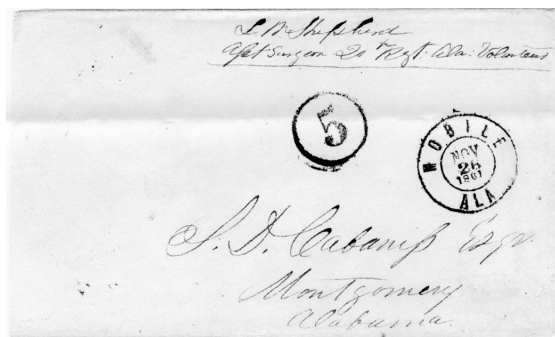 Shepherd
Asst Surgeon 20th Regt. Ala: Volunteers
5
MOBILE
NOV
26
1861
ALA
S. D. Cabaniss Esqr
Montgomery
Alabama.